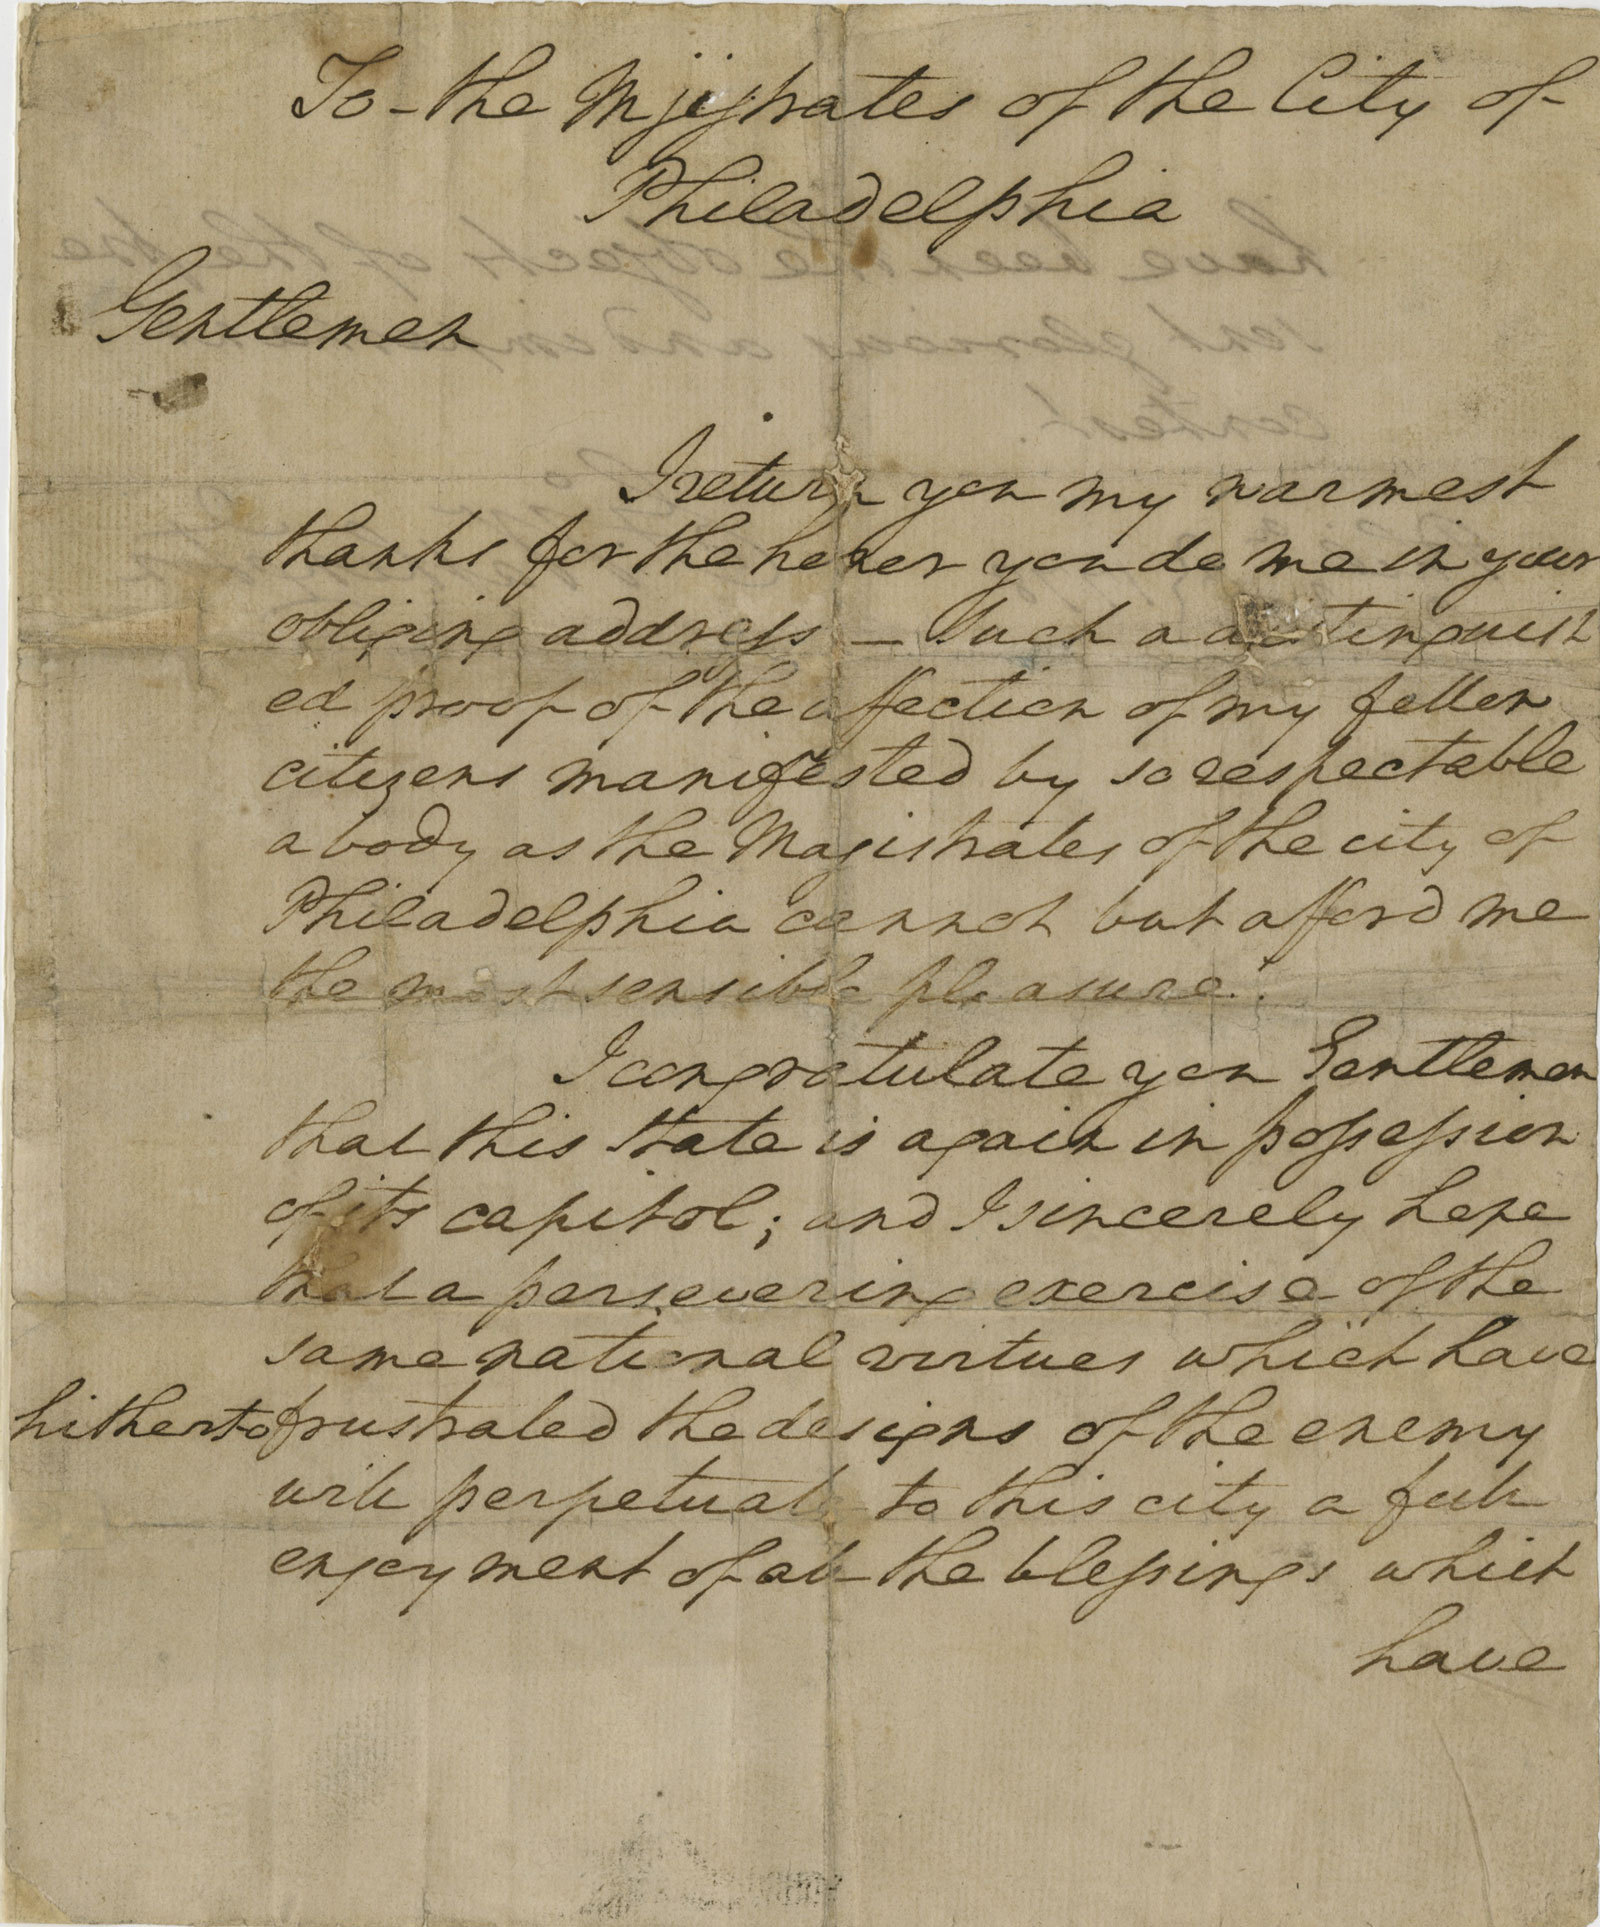 To the Mjistrates of the City of
Philadelphia
Gentlemen
I return you my warmest
thanks for the honor you do me in your
obliging address — Such a distinguish
ed proof of the affection of my fellow
citizens manifested by so respectable
a body as the Magistrates of the city of
Philadelphia cannot but afford me
the most sensible pleasure.
I congratulate you Gentlemen
that this State is again in possession
of its capitol; and I sincerely hope
that a persevering exercise of the
same national virtues which have
hitherto frustrated the designs of the enemy
will perpetuate to this city a full
enjoyment of all the blessings which
have